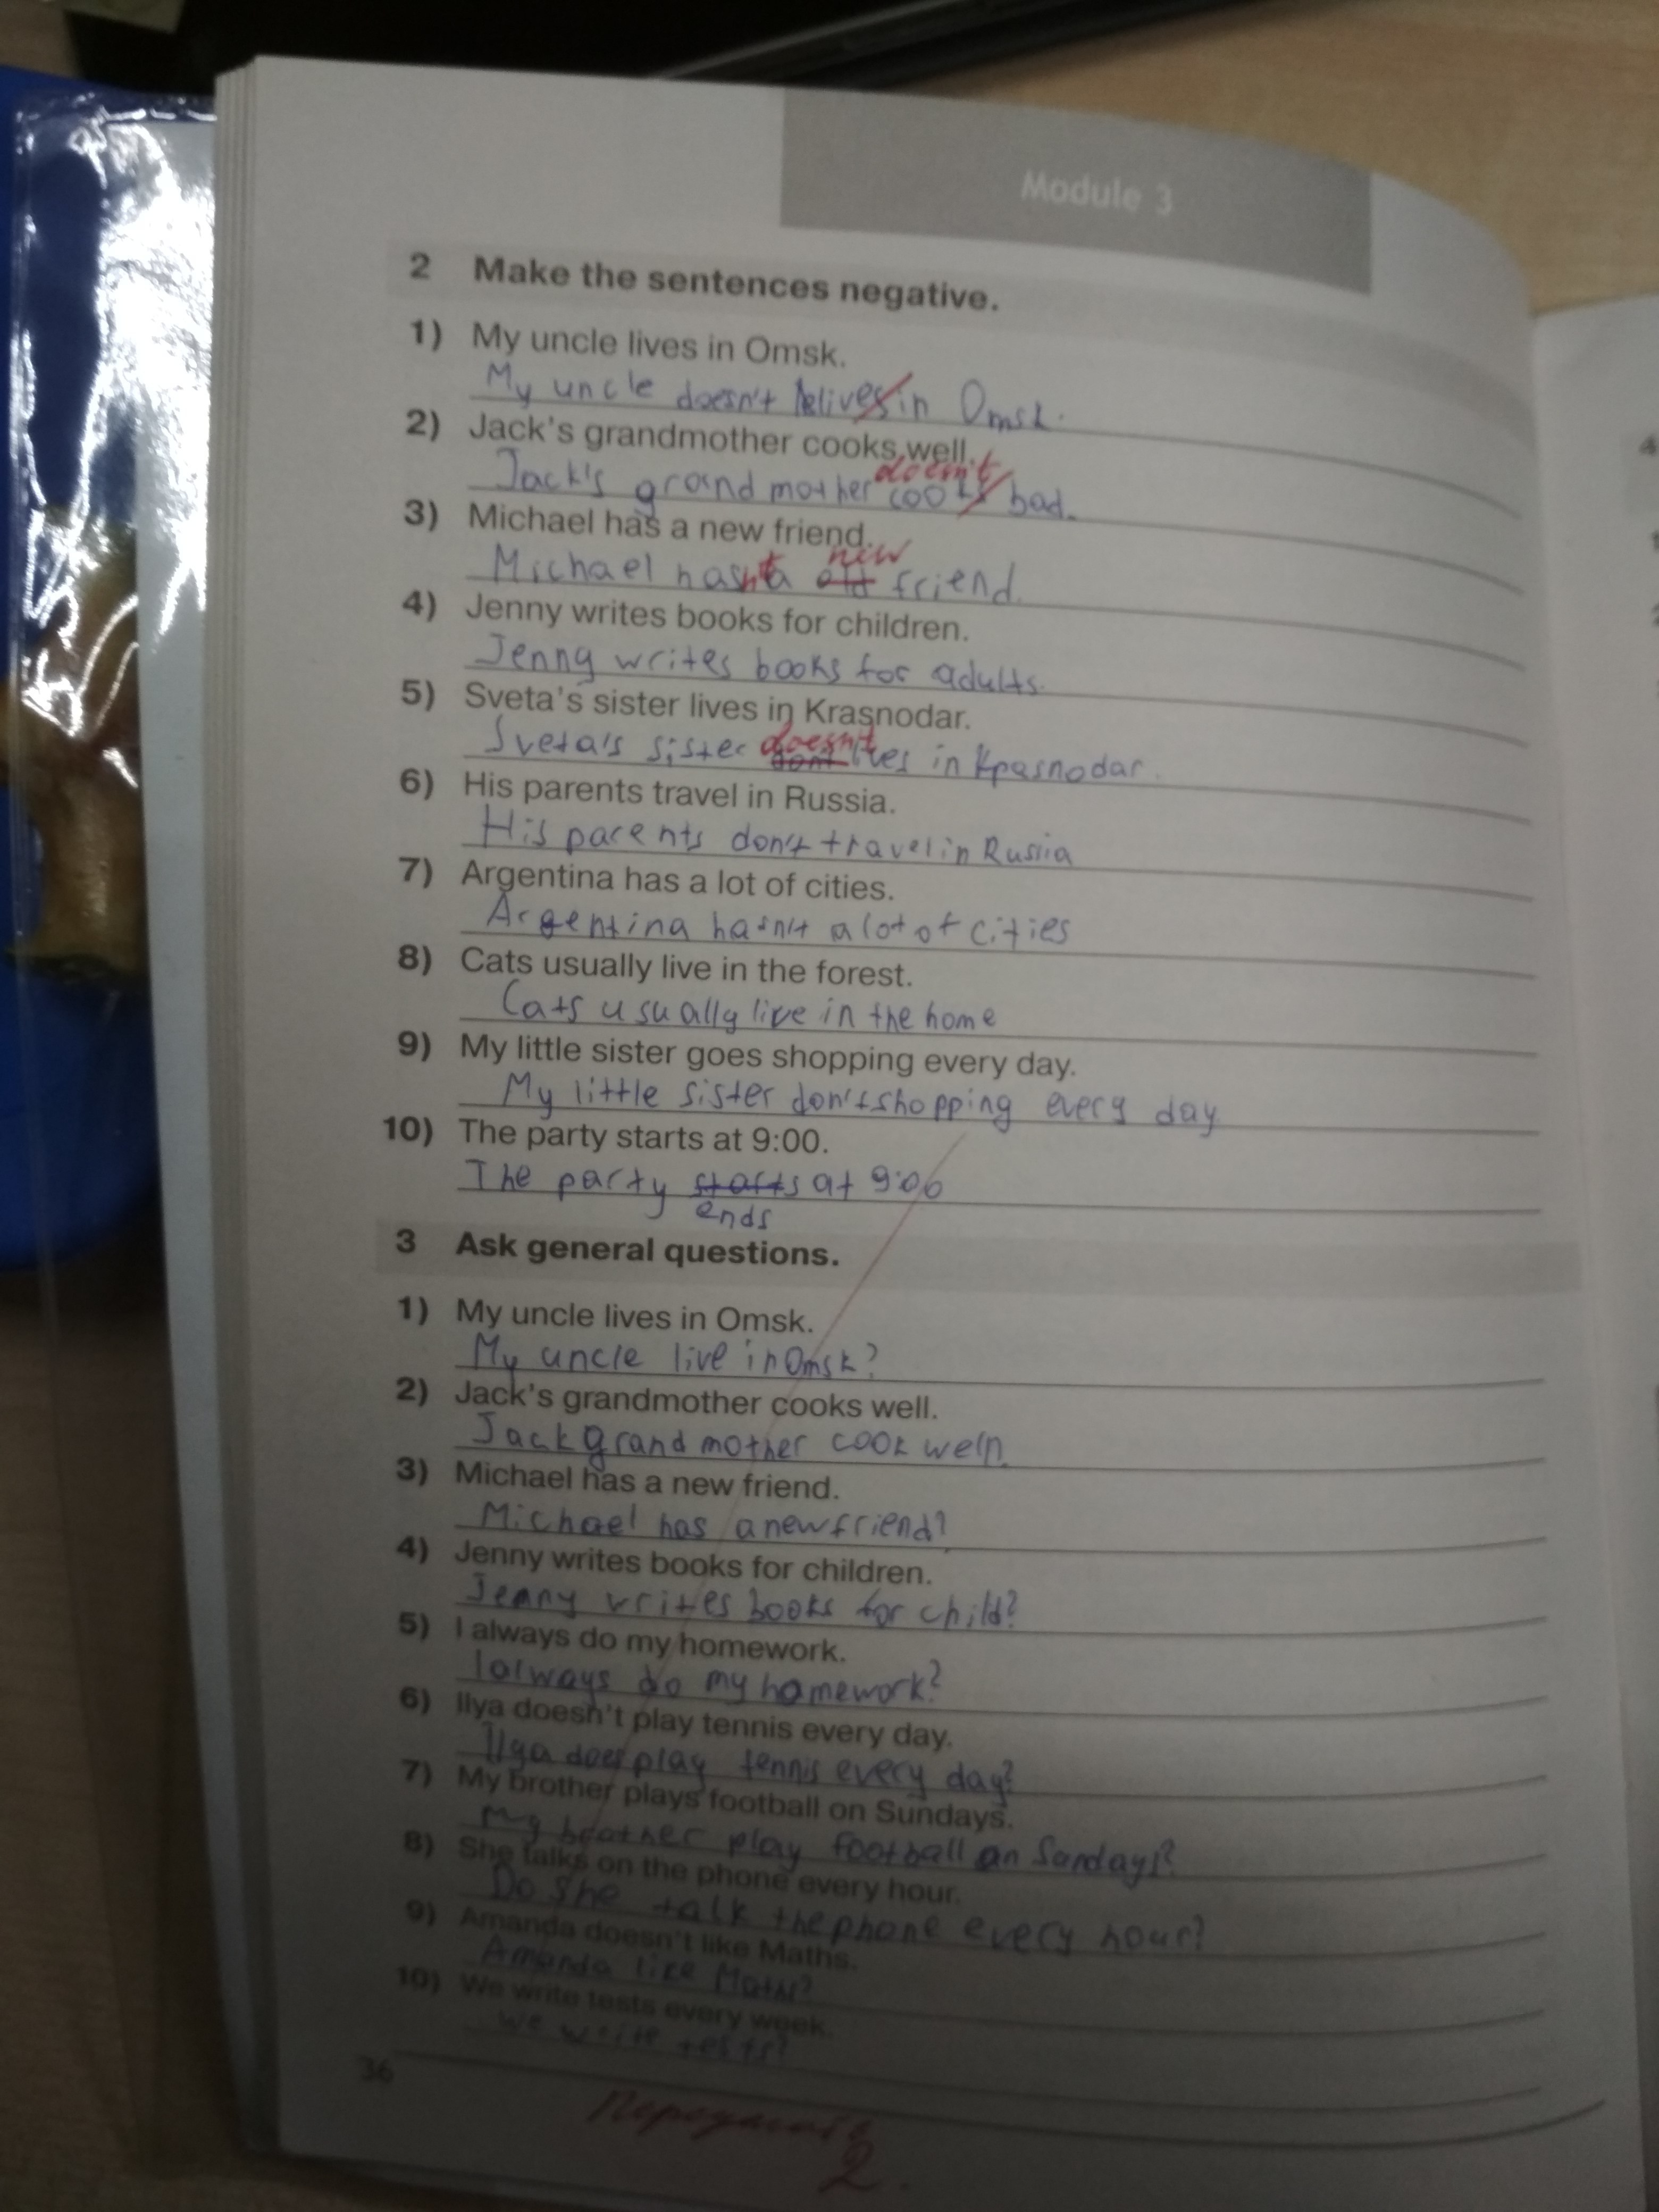 Module 3
2 Make the sentences negative.
1) My uncle lives in Omsk.
My uncle doesn't lives in Omsk.
2) Jack's grandmother cooks well.
doesn't
Jack's grandmother cooks bad.
3) Michael has a new friend.
new
Michael hasn't a old friend.
4) Jenny writes books for children.
Jenny writes books for adults.
5) Sveta's sister lives in Krasnodar.
doesn't
Sveta's sister dont lives in Kpasnodar.
6) His parents travel in Russia.
His parents don't travel in Russia
7) Argentina has a lot of cities.
Argentina hasn't a lot of cities
8) Cats usually live in the forest.
Cats usually live in the home
9) My little sister goes shopping every day.
My little sister don't shopping every day
10) The party starts at 9:00.
The party starts at 9:00
ends
3 Ask general questions.
1) My uncle lives in Omsk.
My uncle live in Omsk?
2) Jack's grandmother cooks well.
Jack grandmother cook
3) Michael has a new friend.
Michael has a new friend?
4) Jenny writes books for children.
Jenny writes books for child?
5) I always do my homework.
I always do my homework?
6) Ilya doesn't play tennis every day.
Ilya does play tennis every day?
7) My brother plays football on Sundays.
My brother play football on Sandays?
8) She talks on the phone every hour.
Do she talk the phone every hour?
9) Amanda doesn't like Maths.
Amanda like Maths?
10) We write tests every week.
We write tests?
36
2.